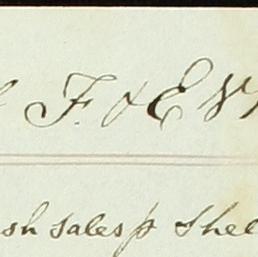 F. & E W
sh sales p Shel